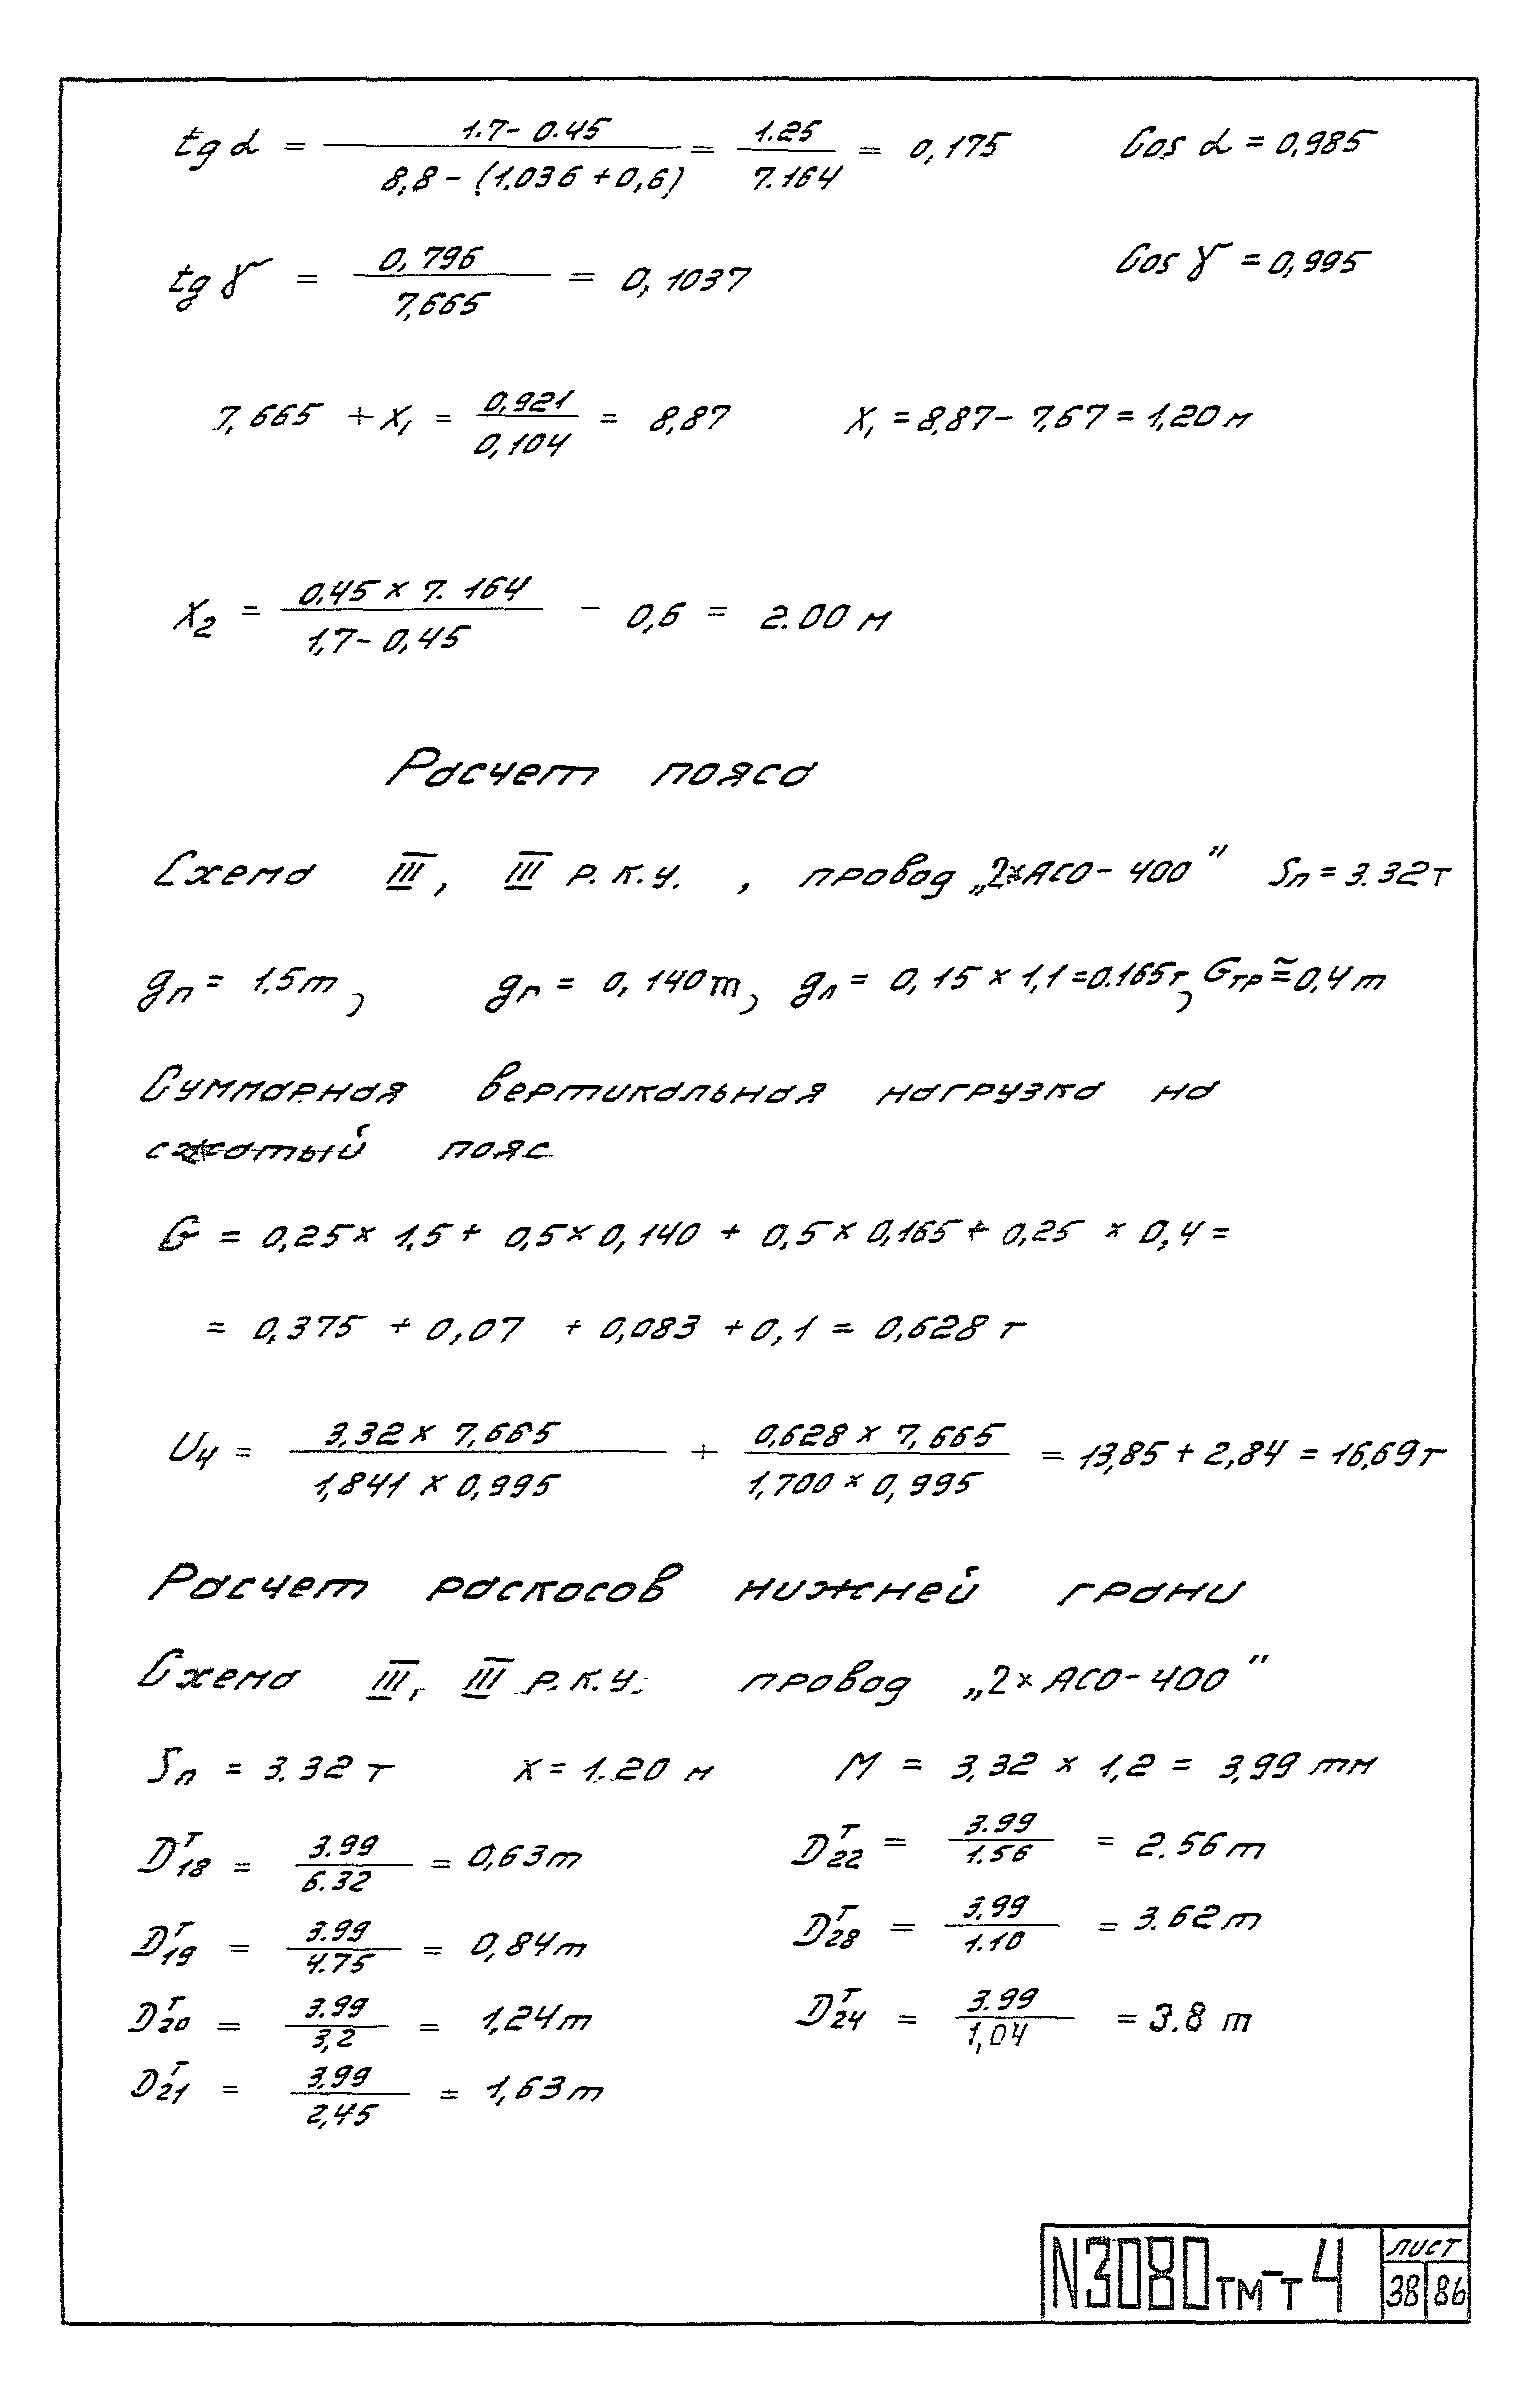 tg α = (1.7 - 0.45) / (8,8 - (1.036 + 0,6)) = 1.25 / 7.164 = 0,175 Cos α = 0,985
tg γ = 0,796 / 7,665 = 0,1037 Cos γ = 0,995
7,665 + X₁ = 0,921 / 0,104 = 8,87 X₁ = 8,87 - 7,67 = 1,20 м
X₂ = (0,45 × 7.164) / (1,7 - 0,45) - 0,6 = 2.00 м
Расчет пояса
Схема III, III р.к.у. , провод „2×АСО-400" Sп = 3.32т
gп = 1.5т, gг = 0,140т, gл = 0,15 × 1,1 = 0.165т, Gтр ≅ 0,4т
Суммарная вертикальная нагрузка на
сжатый пояс
G = 0,25 × 1,5 + 0,5 × 0,140 + 0,5 × 0,165 + 0,25 × 0,4 =
= 0,375 + 0,07 + 0,083 + 0,1 = 0,628 т
U₄ = (3,32 × 7,665) / (1,841 × 0,995) + (0,628 × 7,665) / (1,700 × 0,995) = 13,85 + 2,84 = 16,69т
Расчет раскосов нижней грани
Схема III, III р.к.у. провод „2×АСО-400"
Sп = 3.32 т X = 1.20 м М = 3,32 × 1,2 = 3,99 тм
Dᵀ₁₈ = 3.99 / 6.32 = 0,63т Dᵀ₂₂ = 3.99 / 1.56 = 2.56т
Dᵀ₁₉ = 3.99 / 4.75 = 0,84т Dᵀ₂₈ = 3,99 / 1.10 = 3.62т
Dᵀ₂₀ = 3.99 / 3,2 = 1,24т Dᵀ₂₄ = 3.99 / 1,04 = 3.8 т
Dᵀ₂₁ = 3,99 / 2,45 = 1,63т
N3080тм-т4 лист
38 86